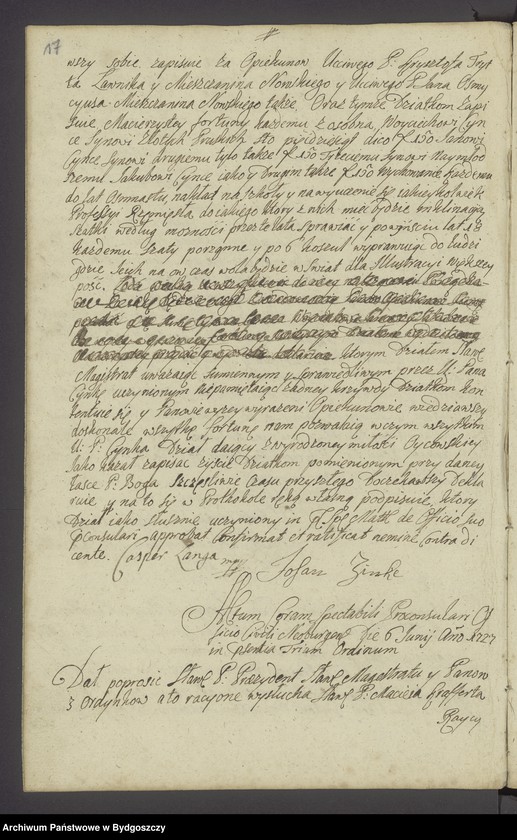 17
wszy sobie zapisuie za Opiekunow Uczciwego P. Krysztofa Tryt
ta Ławnika y Mieszczanina Nowskiego y Uczciwego P. Jana Osmy
cyusa Mieszczanina Nowskiego także, Oraz tymże Dziatkom zapi
suie Macierzystey fortuny kazdemu z osobna, Woyciechowi Cyn
ce Synowi Złotych Pruskich sto piędziesiąt dico f 150 Janowi
Cynce Synowi drugiemu tyło także f 150 Trzeciemu Synowi Naymłod
szemu Jakubowi Cynce iako y Drugim także f 150 Wychowanie kazdemu
do lat Osmnastu, nakład na szkoły y na wyuczenie się iakieyzkolwiek
Professyi Rzemięsła, do iakiego ktory z nich mieć będzie inklinacyą
Szatki według mosnosci przez te lata sprawiać y po wyisciu lat 18
kazdemu Szaty porządne y po 6 koszul wyprawuiąc do ludzi
gdzie Iych na on czas wola będzie w Swiat dla Illustracyi większey
posc.
ktorym Działem Sławę
Magistrat uwazaiąc Sumiennym y sprawiedliwym przez U. Pana
Cynkę uczynionym nie pamiętaiąc zadney krzywdy Dziatkom kon
tentuie się y Panowie wyzey wyrazeni Opiekunowie wiedziawszy
doskonale wszytkę fortunę nam pozwalaią w czym wszytkim
U. P. Cynka Dział daiący z wyrodzoney miłosci Oycowskiey
Jako kazał zapisać zyscić Dziatkom pomienionym przy daney
łasce P: Boga Szczęsliwie czasu przyszłego doczekawszy Dekla
ruie y na to się w Prothokole ręką własną podpisuie, ktory
Dział iako słusznie uczyniony in
Proconsulari approbat Confirmat et ratificat nemine Contradi
cente. Casper Langa mpp
Johan Zinke
Actum Coram Spectabili Proconsulari Of
ficio Civili Neoburgen Die 6 Junij Año 1727
in psentia Trium Ordinum
Dał poprosic Sławę P: Prezydent Sławę Magistratu y Panow
3 Ordynkow a to racyone wysłucha Sławę P: Macieia Grafferta
Raycy
Archiwum Państwowe w Bydgoszczy